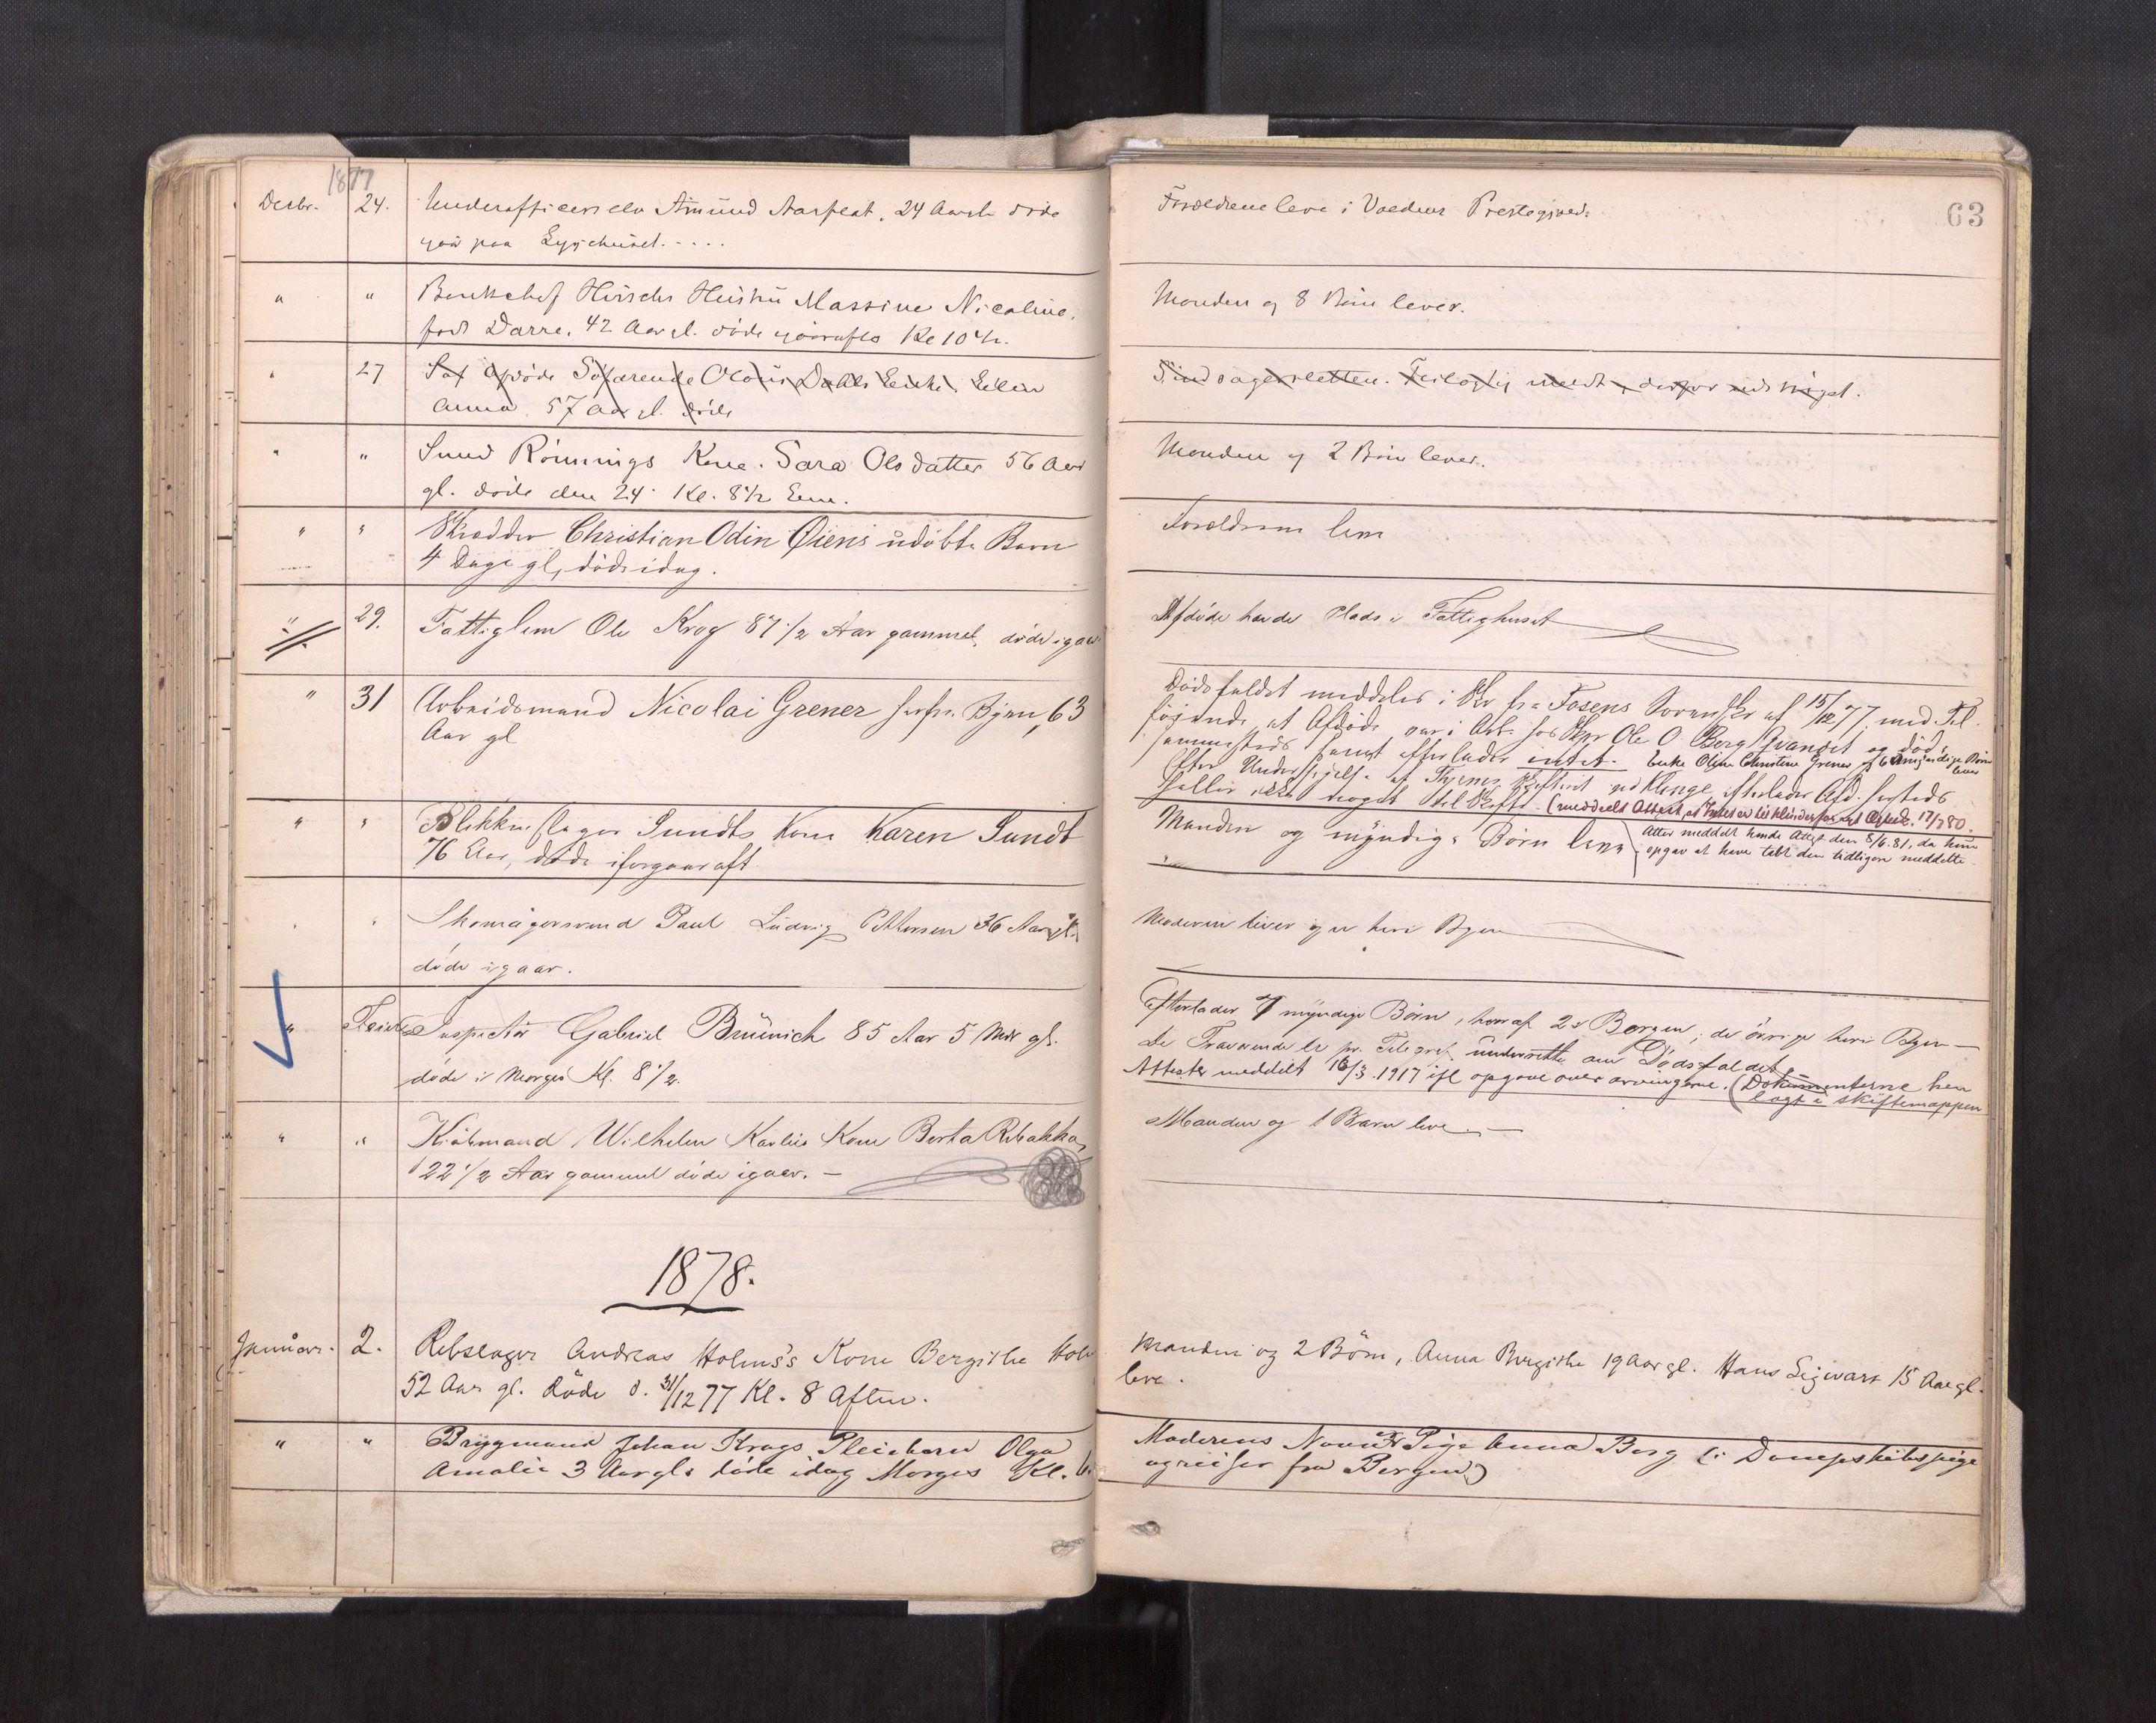 1877
Decbr. 24. Underofficerselev Amund Aarflat, 24 Aar gl. døde
igaar paa Sygehuset.
Forældrene leve i Prestegjeld.
" " Massine Nicoline,
født Darre, 42 Aar gl. døde Kl 10
Manden og 8 Børn lever.
" 27 Søfarende Dahls Enke, Ellen
Anna, 57 Aar gl. døde
meldt, derfor
" " Rønnings Kone. Sara Olsdatter 56 Aar
gl. døde den 24. Kl. 8½ Em.
Manden og 2 Børn lever.
" " Skrædder Christian Odin Øiens udøbte Barn
4 Dage gl, døde idag.
Forældrene leve
" 29. Fattiglem Ole Krog 87 1/2 Aar gammel, døde igaar
Afdøde havde Plads i Fattighuset
" 31 Arbeidsmand Nicolai Grener herfra Byen, 63
Aar gl
Dødsfaldet meddeles i Skr fra Fosens Sorenskr af 15/12 77, med Til-
føiende, at Afdøde var i Arb. hos Ole O. Berg og død
sammesteds samt efterlader intet. Enke Christine Grener og 6 umyndige Børn
lever
Efter Undersøgelse af efterlader Afd. hersteds
heller ikke noget til Skifte. (meddelt Attest 17/7 80.
" " Blikkenslager Sundts Kone Karen Sundt
76 Aar, døde iforgaars aft.
Manden og myndige Børn leve
Atter meddelt hende Attest den 8/6. 81, da hun
opgav at have tabt den tidligere meddelte.
" " Skomagersvend Paul Ludvig 36 Aar gl.
døde igaar.
Moderen lever og er her i Byen
" Inspectør Gabriel Brünnich 85 Aar 5 Mdr gl.
døde i Morges Kl. 8 1/2.
Efterlader 7 myndige Børn, hvoraf 2 i Bergen, de øvrige her i Byen —
De Fraværende er pr. Telegraf underrettet om Dødsfaldet. —
Attester meddelt 16/3 1917 ifl opgave over arvingerne. (Dokumenterne hen
lagt i skiftemappen
" " Kjøbmand Wilhelm Kone Berta Rebekka,
22 1/2 Aar gammel døde igaar. —
Manden og 1 Barn leve. —
1878.
Januar. 2. Rebslager Andreas Holms's Kone Bergithe Holm
52 Aar gl. døde d. 31/12 77 Kl. 8 Aften.
Manden og 2 Børn, Anna Bergithe 19 Aar gl. Hans Sigvart 15 Aar gl.
leve.
" " Bryggmand Johan Krogs Pleiebarn Olga
Amalie 3 Aar gl. døde idag Morges Kl. 6.
Moderens Navn er Pige Anna Berg (: Dampskibspige
og reiser fra Bergen)
63